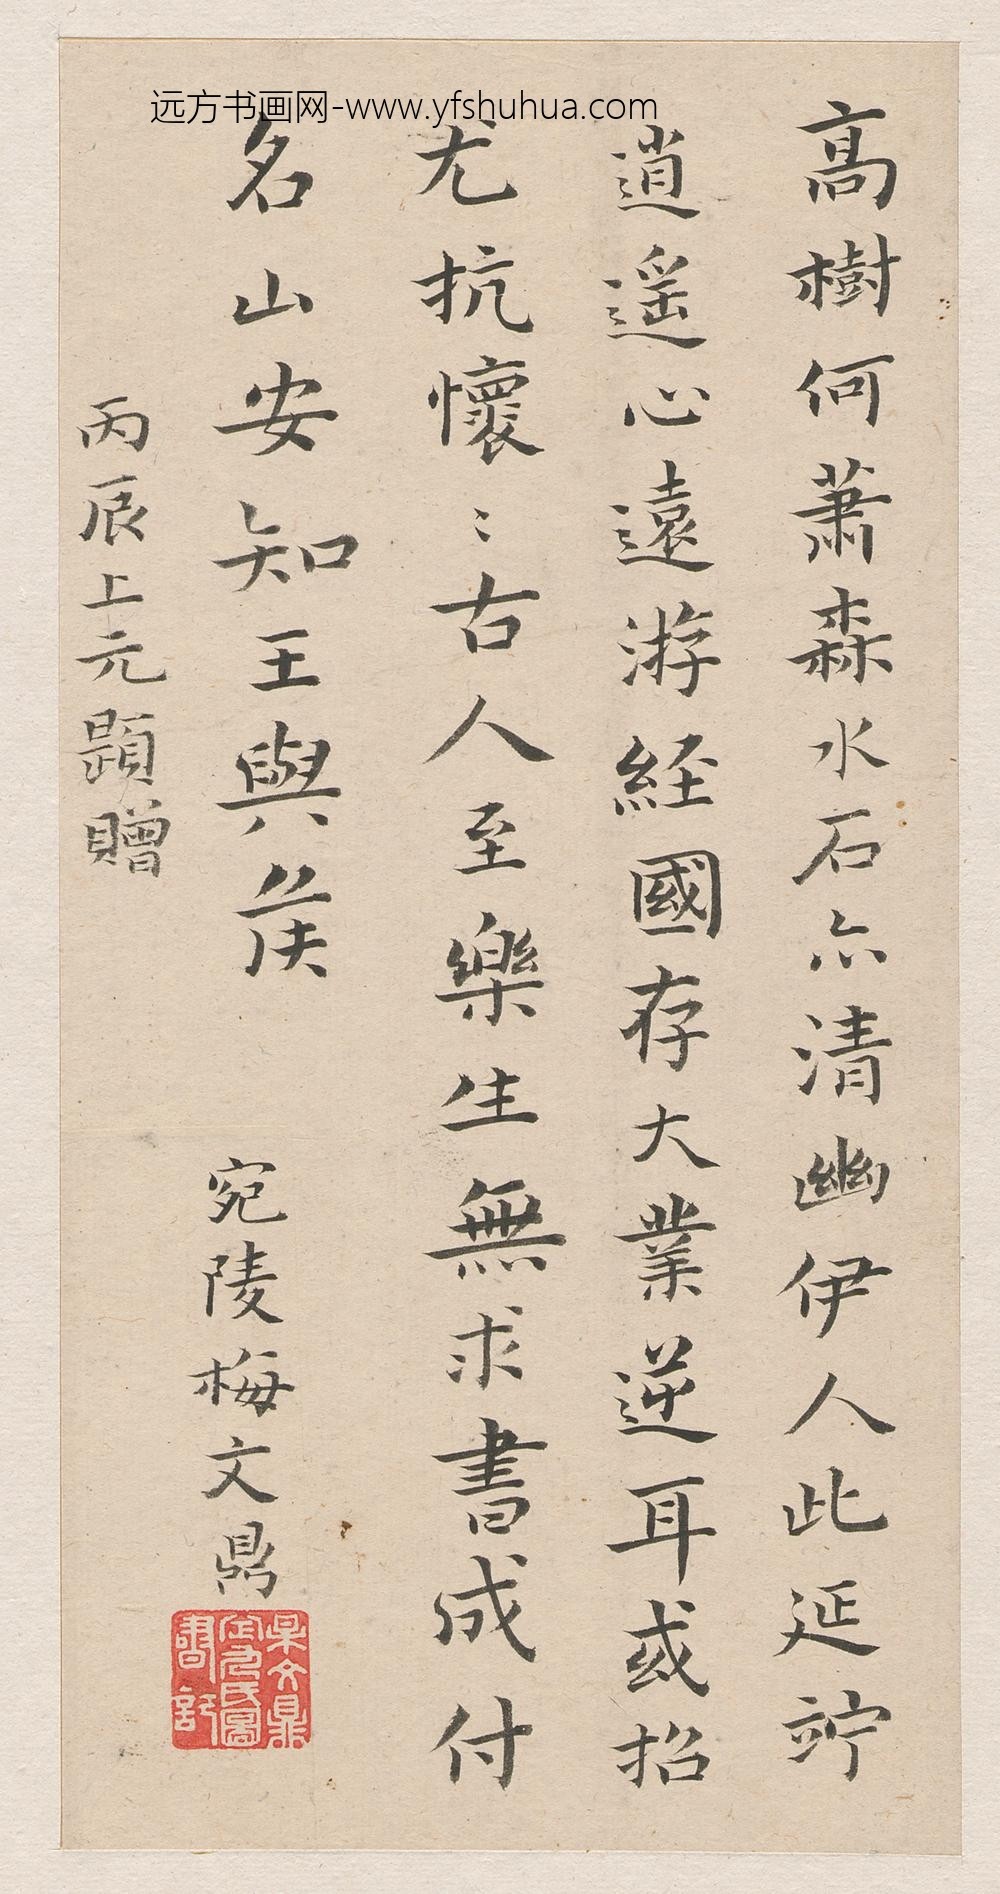 远方书画网-www.yfshuhua.com
高樹何蕭森水石亦清幽伊人此延竚
逍遥心遠游經國存大業逆耳或招
尤抗懷〻古人至樂生無求書成付
名山安知王與矦
丙辰上元題贈
宛陵梅文鼎